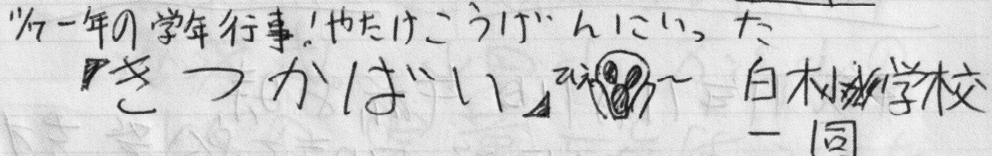 ツケ一年の学年行事!やたけこうげんにいった
『きつかばい』ひえ〜 白木小学校
一同